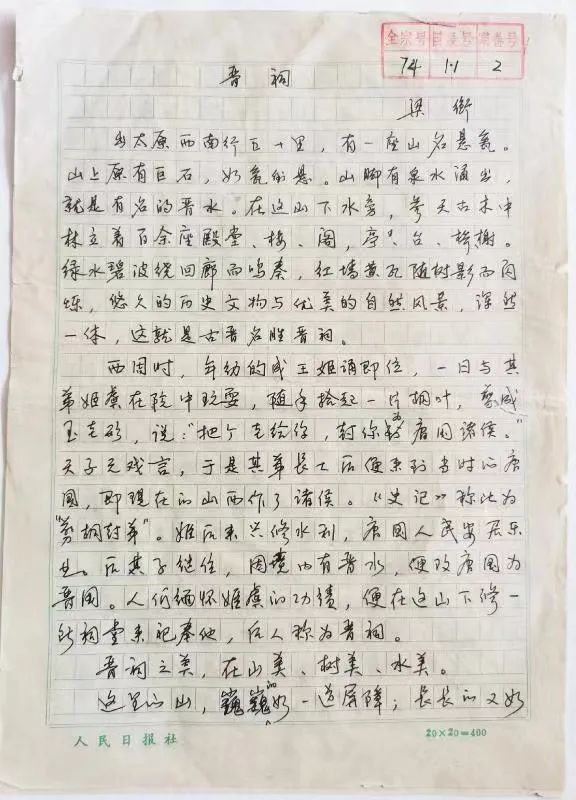 全宗号 目录号 案卷号
74 1·1 2
晋祠
梁衡
出太原西南行五十里，有一座山名悬瓮。
山上原有巨石，如瓮倒悬。山脚有泉水涌出，
就是有名的晋水。在这山下水旁，参天古木中
林立着百余座殿堂、楼、阁，亭、台、桥榭。
绿水碧波绕回廊而鸣奏，红墙黄瓦随树影而闪
烁，悠久的历史文物与优美的自然风景，浑然
一体，这就是古晋名胜晋祠。
西周时，年幼的成王姬诵即位，一日与其
弟姬虞在院中玩耍，随手拾起一片桐叶，剪成
玉圭形，说：“把个圭给你，封你为唐国诸侯。”
天子无戏言，于是其弟长大后便来到当时的唐
国，即现在的山西作了诸侯。《史记》称此为
“剪桐封弟”。姬后来兴修水利，唐国人民安居乐
业。后其子继位，因境内有晋水，便改唐国为
晋国。人们缅怀姬虞的功绩，便在这山下修一
所祠堂来祀奉他，后人称为晋祠。
晋祠之美，在山美、树美、水美。
这里的山，巍巍的如一道屏障；长长的又如
人民日报社 20×20=400